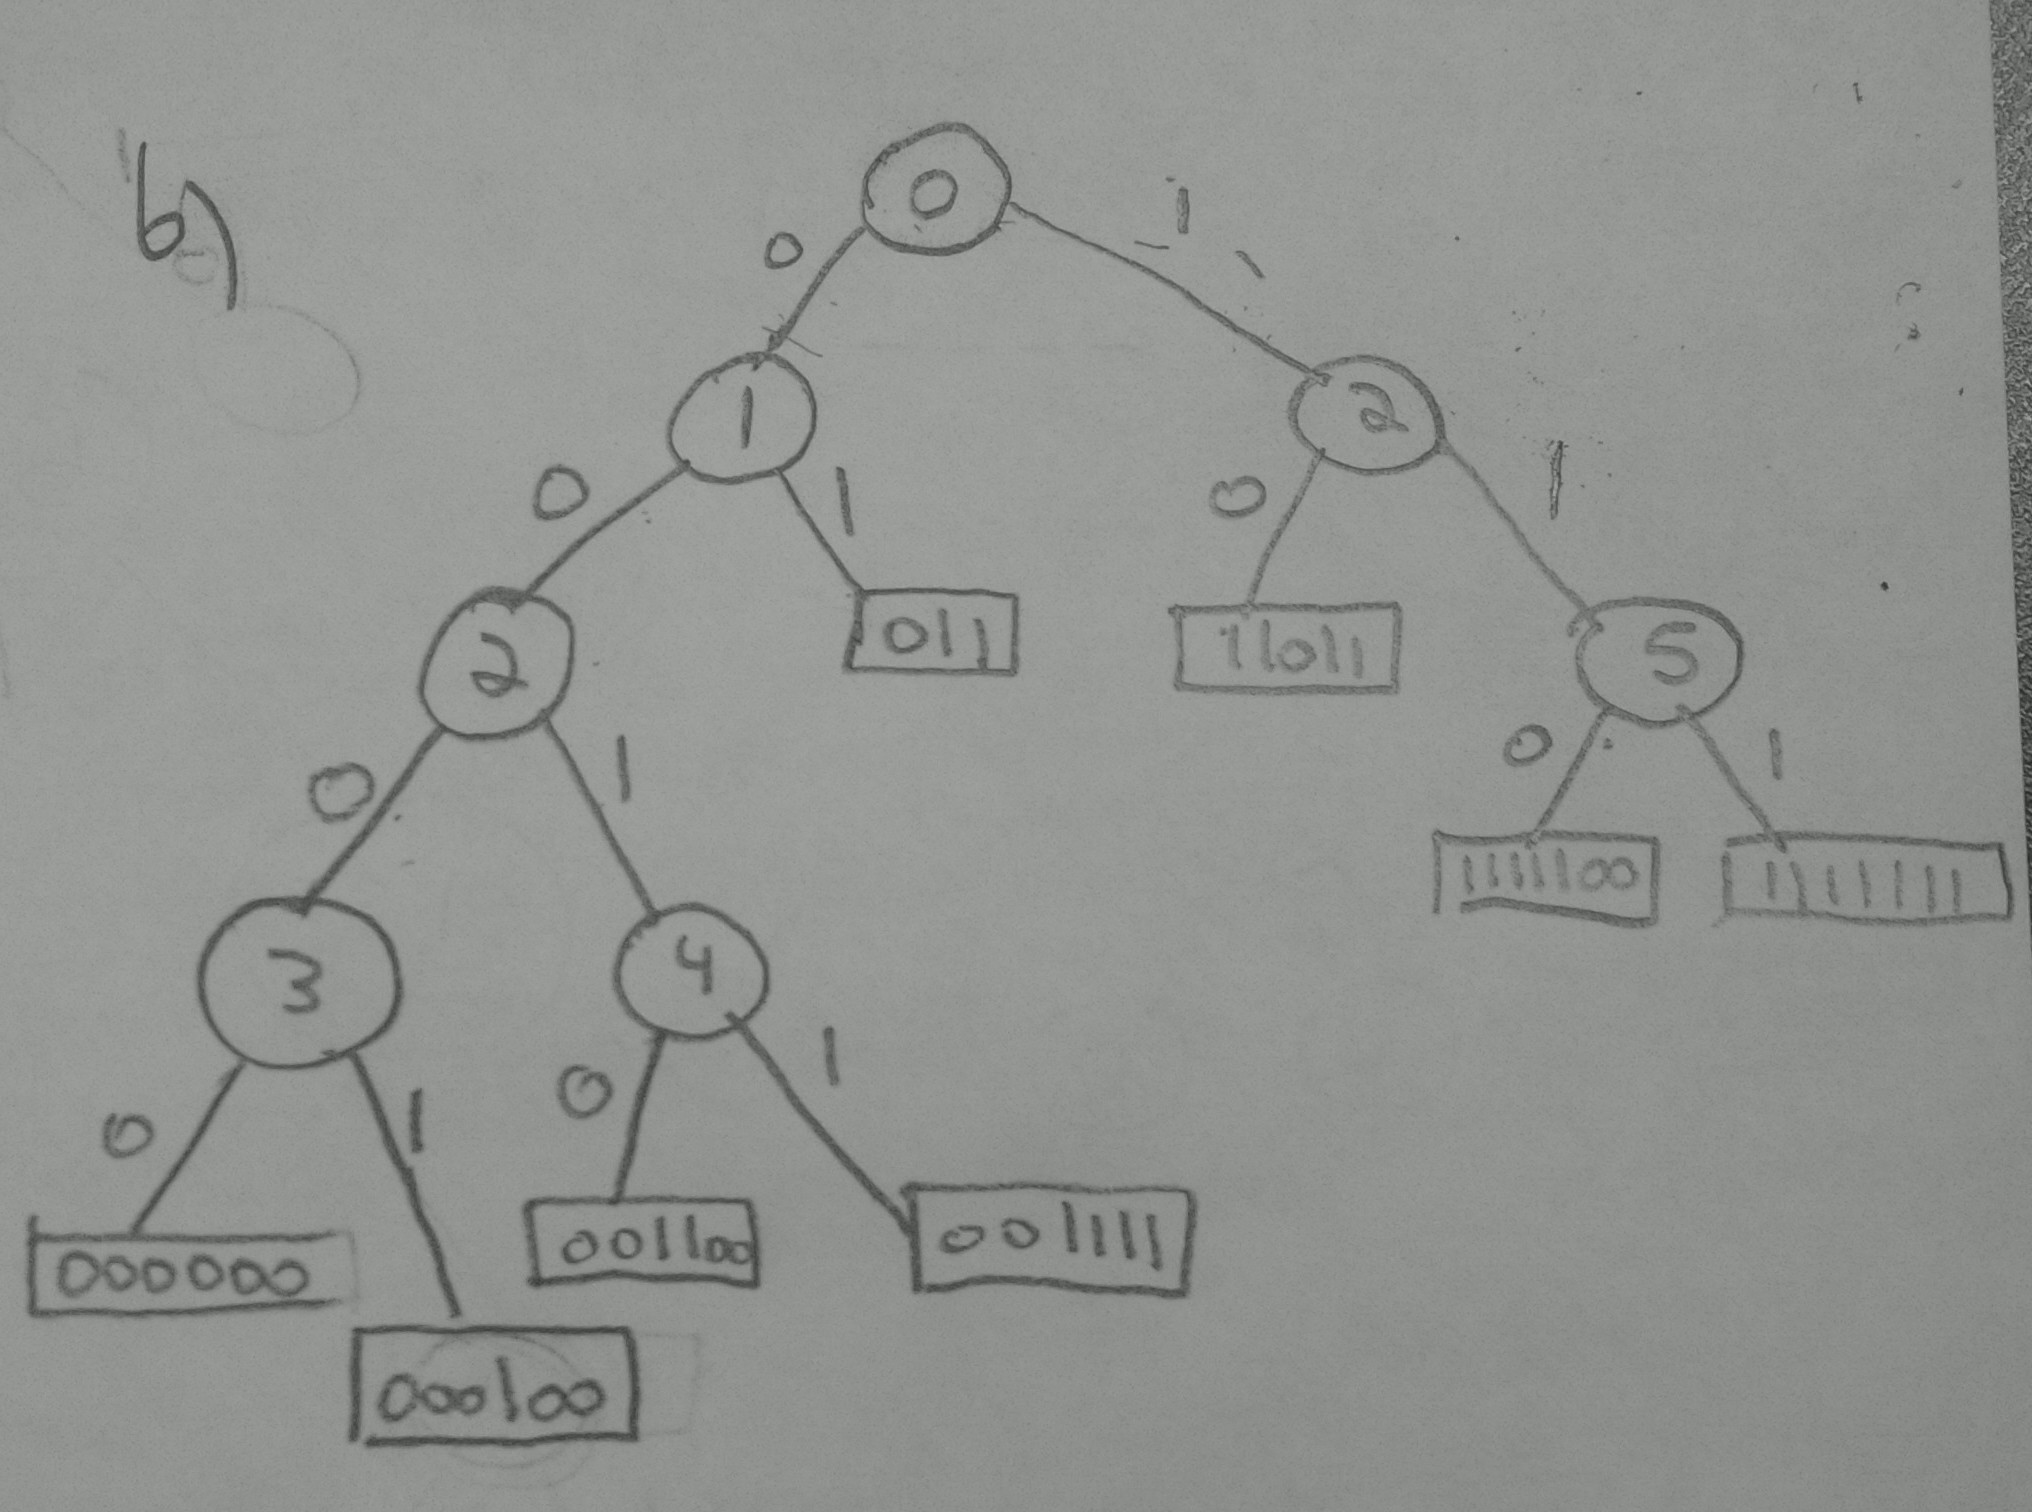 b)
0
0 1
1 2
0 1 0 1
2 011 11011 5
0 1 0 1
11111100 1111111
3 4
0 1 0 1
000000 001100 001111
000100